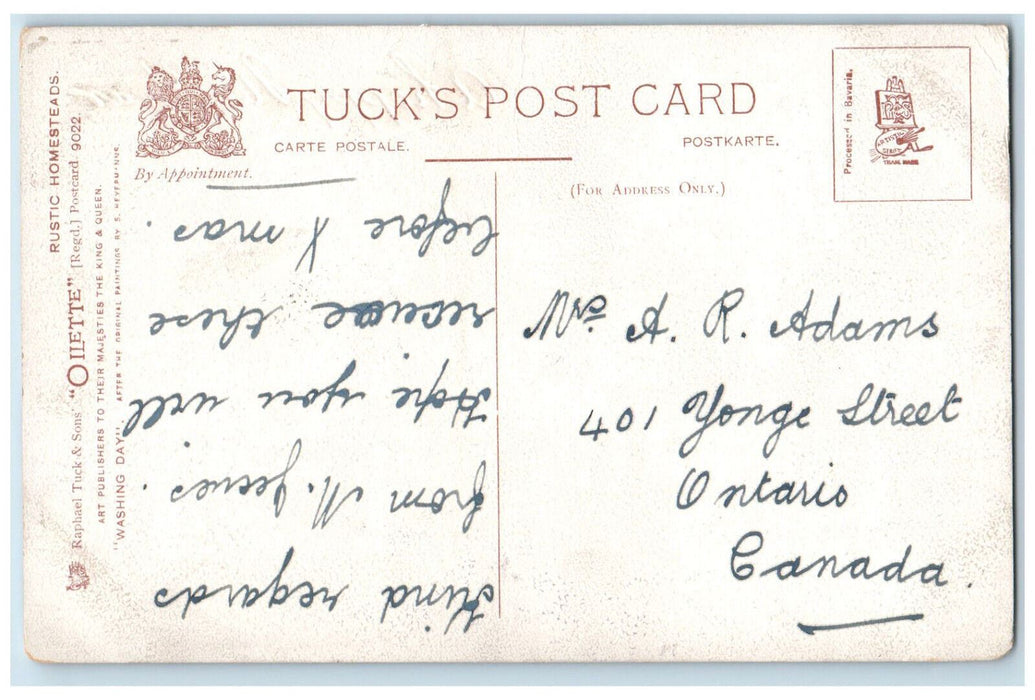 TUCK'S POST CARD
CARTE POSTALE.
POSTKARTE.
By Appointment.
(For Address Only.)
Processed in Bavaria.
ARTISTIC SERIES
TRADE MARK
RUSTIC HOMESTEADS.
Raphael Tuck & Sons' "OILETTE" [Regd.] Postcard 9022.
ART PUBLISHERS TO THEIR MAJESTIES THE KING & QUEEN.
"WASHING DAY". AFTER THE ORIGINAL PAINTINGS BY S.
Kind regards
from M.
Hope you will
recieve these
before Xmas.
Mrs A. R. Adams
401 Yonge Street
Ontario
Canada.